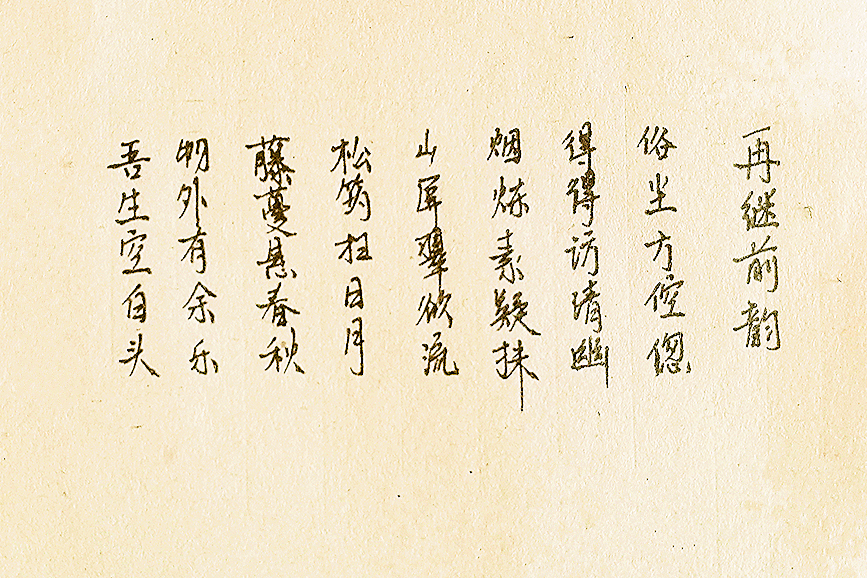 再继前韵
俗尘方倥偬
得得访清幽
烟炼素疑抹
山屏翠欲流
松筠抂日月
藤蔓悬春秋
物外有余乐
吾生空白头